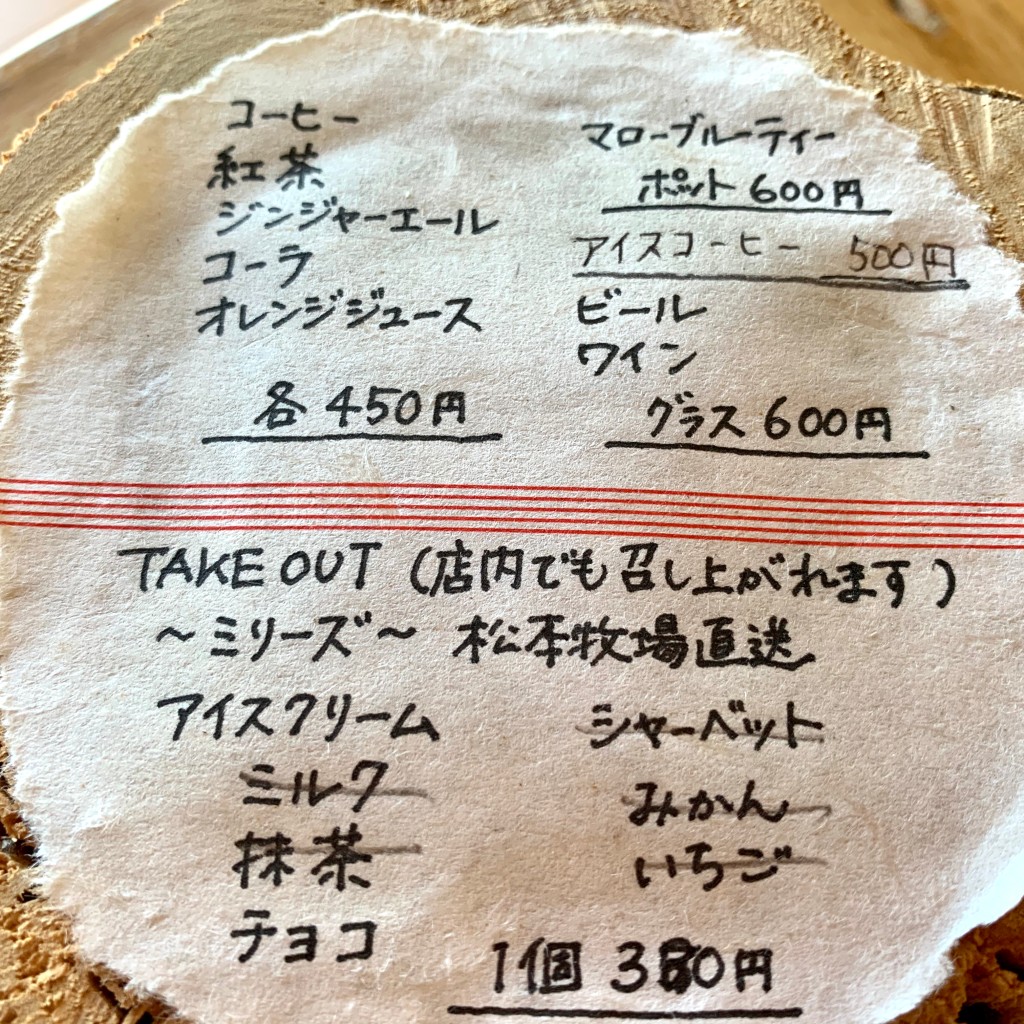 コーヒー
紅茶
ジンジャーエール
コーラ
オレンジジュース
各 450円
マローブルーティー
ポット 600円
アイスコーヒー 500円
ビール
ワイン
グラス 600円
TAKE OUT (店内でも召し上がれます)
～ミリーズ～ 松本牧場直送
アイスクリーム
ミルク
抹茶
チョコ
シャーベット
みかん
いちご
1個